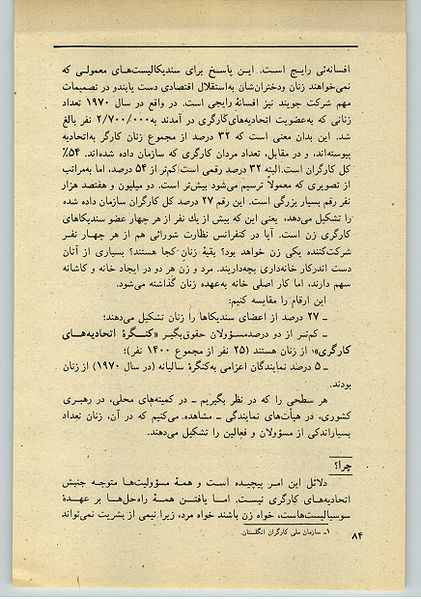 افسانه‌ئی رایج است. این پاسخ برای سندیکالیست‌های معمولی که
نمی‌خواهند زنان ودختران‌شان به‌استقلال اقتصادی دست یابندو در تصمیمات
مهم شرکت جویند نیز افسانهٔ رایجی است. در واقع در سال ۱۹۷۰ تعداد
زنانی که به‌عضویت اتحادیه‌های‌کارگری در آمدند به‌۲/۷۰۰/۰۰۰ نفر بالغ
شد. این بدان معنی است که ۳۲ درصد از مجموع زنان کارگر به‌اتحادیه
پیوسته‌اند، و در مقابل، تعداد مردان کارگری که سازمان داده شده‌اند. ۵۴٪
کل کارگران است.البته ۳۲ درصد رقمی است‌کم‌تر از ۵۴ درصد، اما به‌مراتب
از تصویری که معمولاً ترسیم می‌شود بیش‌تر است. دو میلیون و هفتصد هزار
نفر رقم بسیار بزرگی است. این رقم ۲۷ درصد کل کارگران سازمان داده شده
را تشکیل می‌دهد، یعنی این که بیش از یك نفر از هر چهار عضو سندیکاهای
کارگری زن است. آیا در کنفرانس نظارت شورائی هم از هر چهار نفر
شرکت‌کننده یکی زن خواهد بود؟ بقیهٔ زنان کجا هستند؟ بسیاری از آنان
دست اندرکار خانه‌داری بچه‌داریند. مرد و زن هر دو در ایجاد خانه و کاشانه
سهم دارند، اما کار اصلی خانه به‌عهده زنان گذاشته می‌شود.
این ارقام را مقایسه کنیم:
ـ ۲۷ درصد از اعضای سندیکاها را زنان تشکیل می‌دهند؛
ـ کم‌تر از دو درصدمسؤولان حقوق‌بگیر «کنگرهٔ اتحادیه‌های
کارگری»¹ از زنان هستند (۲۵ نفر از مجموع ۱۴۰۰ نفر)؛
ـ ۵ درصد نمایندگان اعزامی به‌کنگرهٔ سالیانه (در سال ۱۹۷۰) از زنان
بودند.
هر سطحی را که در نظر بگیریم ـ در کمیته‌های محلی، در رهبری
کشوری، در هیأت‌های نمایندگی ـ مشاهده می‌کنیم که در آن، زنان تعداد
بسیاراندکی از مسؤولان و فعالین را تشکیل می‌دهند.
چرا؟
دلائل این امر پیچیده است و همهٔ مسؤولیت‌ها متوجه جنبش
اتحادیه‌های کارگری نیست. اما یافتن همهٔ راه‌حل‌ها بر عهدهٔ
سوسیالیست‌هاست، خواه زن باشند خواه مرد، زیرا نیمی از بشریت نمی‌تواند
۱ـ سازمان ملی کارگران انگلستان.
۸۴